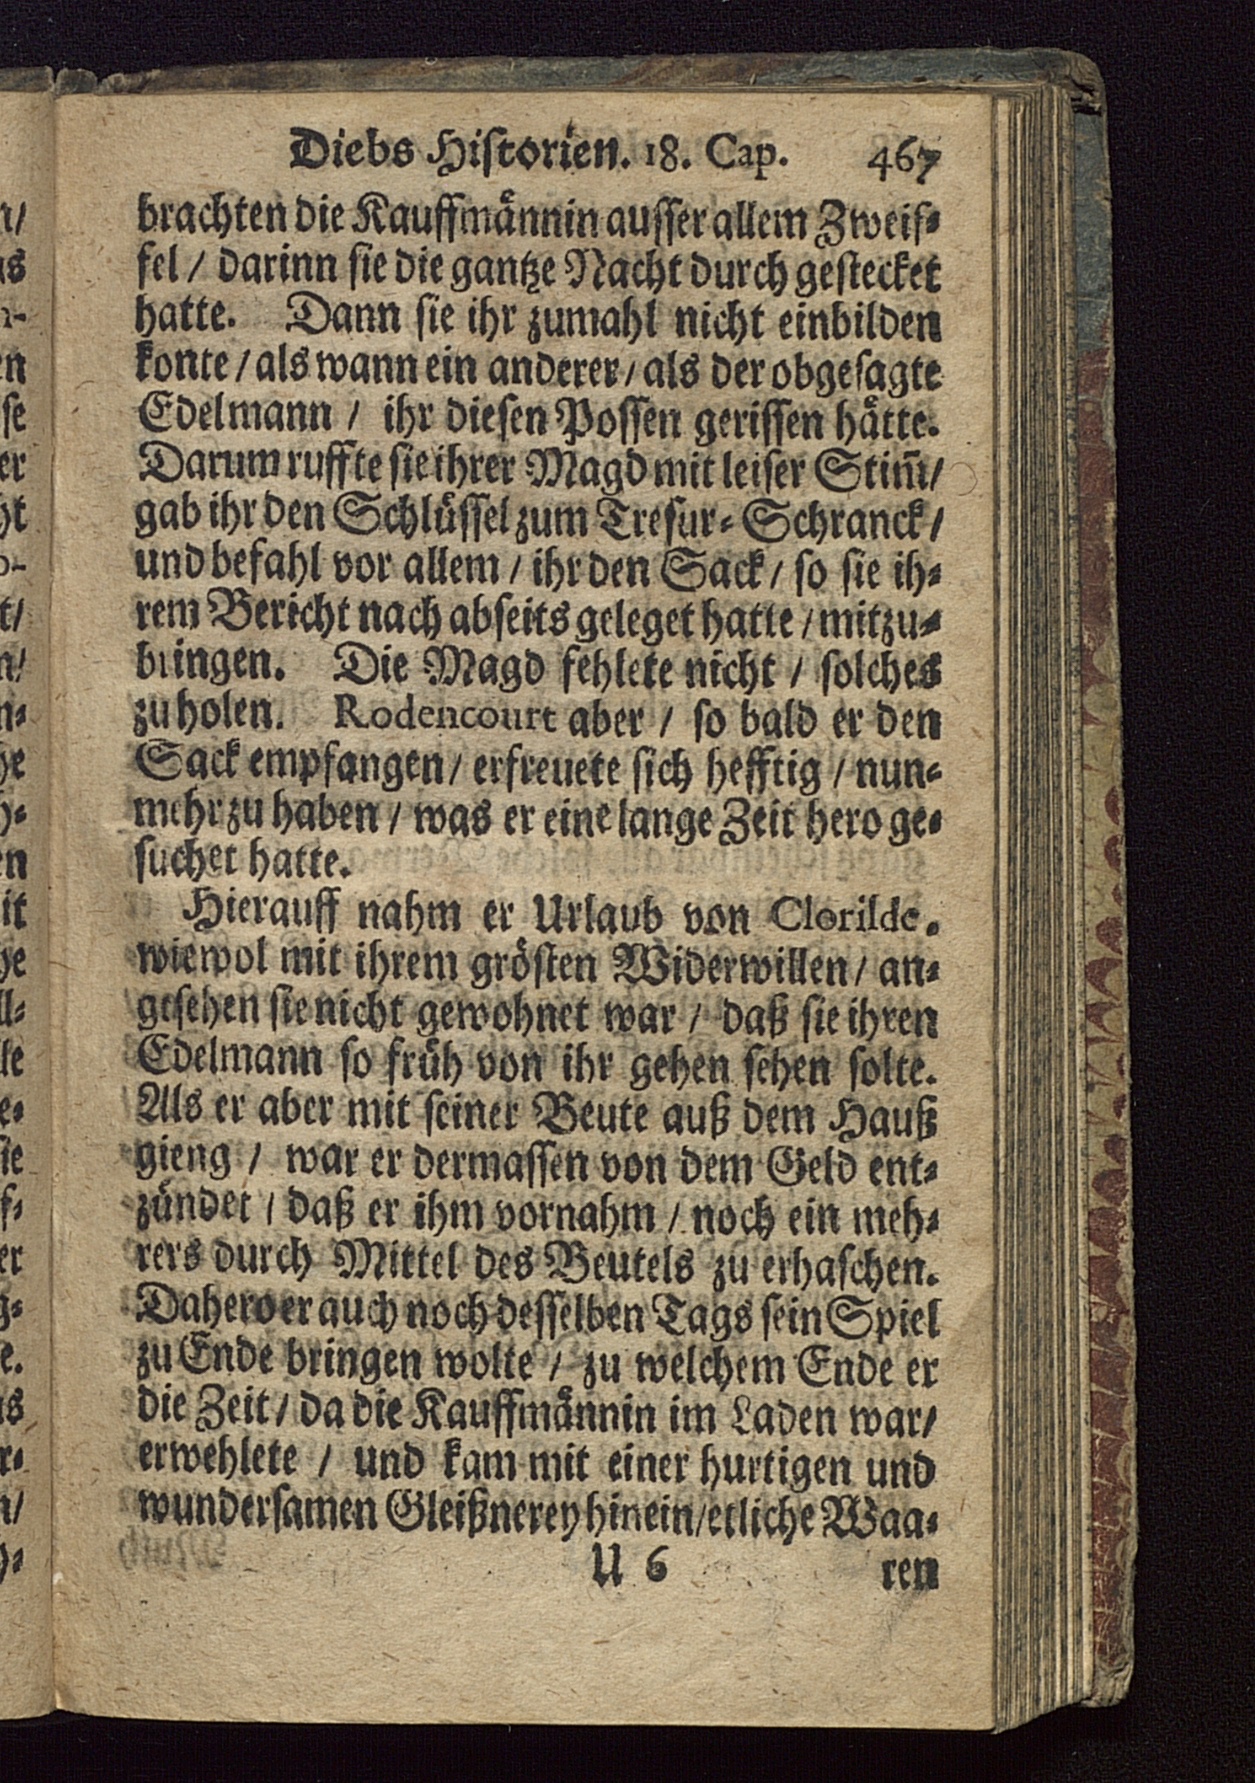 Diebs Historien. 18. Cap. 467
brachten die Kauffmännin ausser allem Zweif-
fel / darinn sie die gantze Nacht durch gestecket
hatte. Dann sie ihr zumahl nicht einbilden
konte / als wann ein anderer / als der obgesagte
Edelmann / ihr diesen Possen gerissen hätte.
Darum ruffte sie ihrer Magd mit leiser Stim̃ /
gab ihr den Schlüssel zum Tresur-Schranck /
und befahl vor allem / ihr den Sack / so sie ih-
rem Bericht nach abseits geleget hatte / mitzu-
bringen. Die Magd fehlete nicht / solches
zu holen. Rodencourt aber / so bald er den
Sack empfangen / erfreuete sich hefftig / nun-
mehr zu haben / was er eine lange Zeit hero ge-
suchet hatte.
Hierauff nahm er Urlaub von Clorilde.
wiewol mit ihrem grösten Widerwillen / an-
gesehen sie nicht gewohnet war / daß sie ihren
Edelmann so früh von ihr gehen sehen solte.
Als er aber mit seiner Beute auß dem Hauß
gieng / war er dermassen von dem Geld ent-
zündet / daß er ihm vornahm / noch ein meh-
rers durch Mittel des Beutels zu erhaschen.
Dahero er auch noch desselben Tags sein Spiel
zu Ende bringen wolte / zu welchem Ende er
die Zeit / da die Kauffmännin im Laden war /
erwehlete / und kam mit einer hurtigen und
wundersamen Gleißnerey hinein / etliche Waa-
U 6 ren